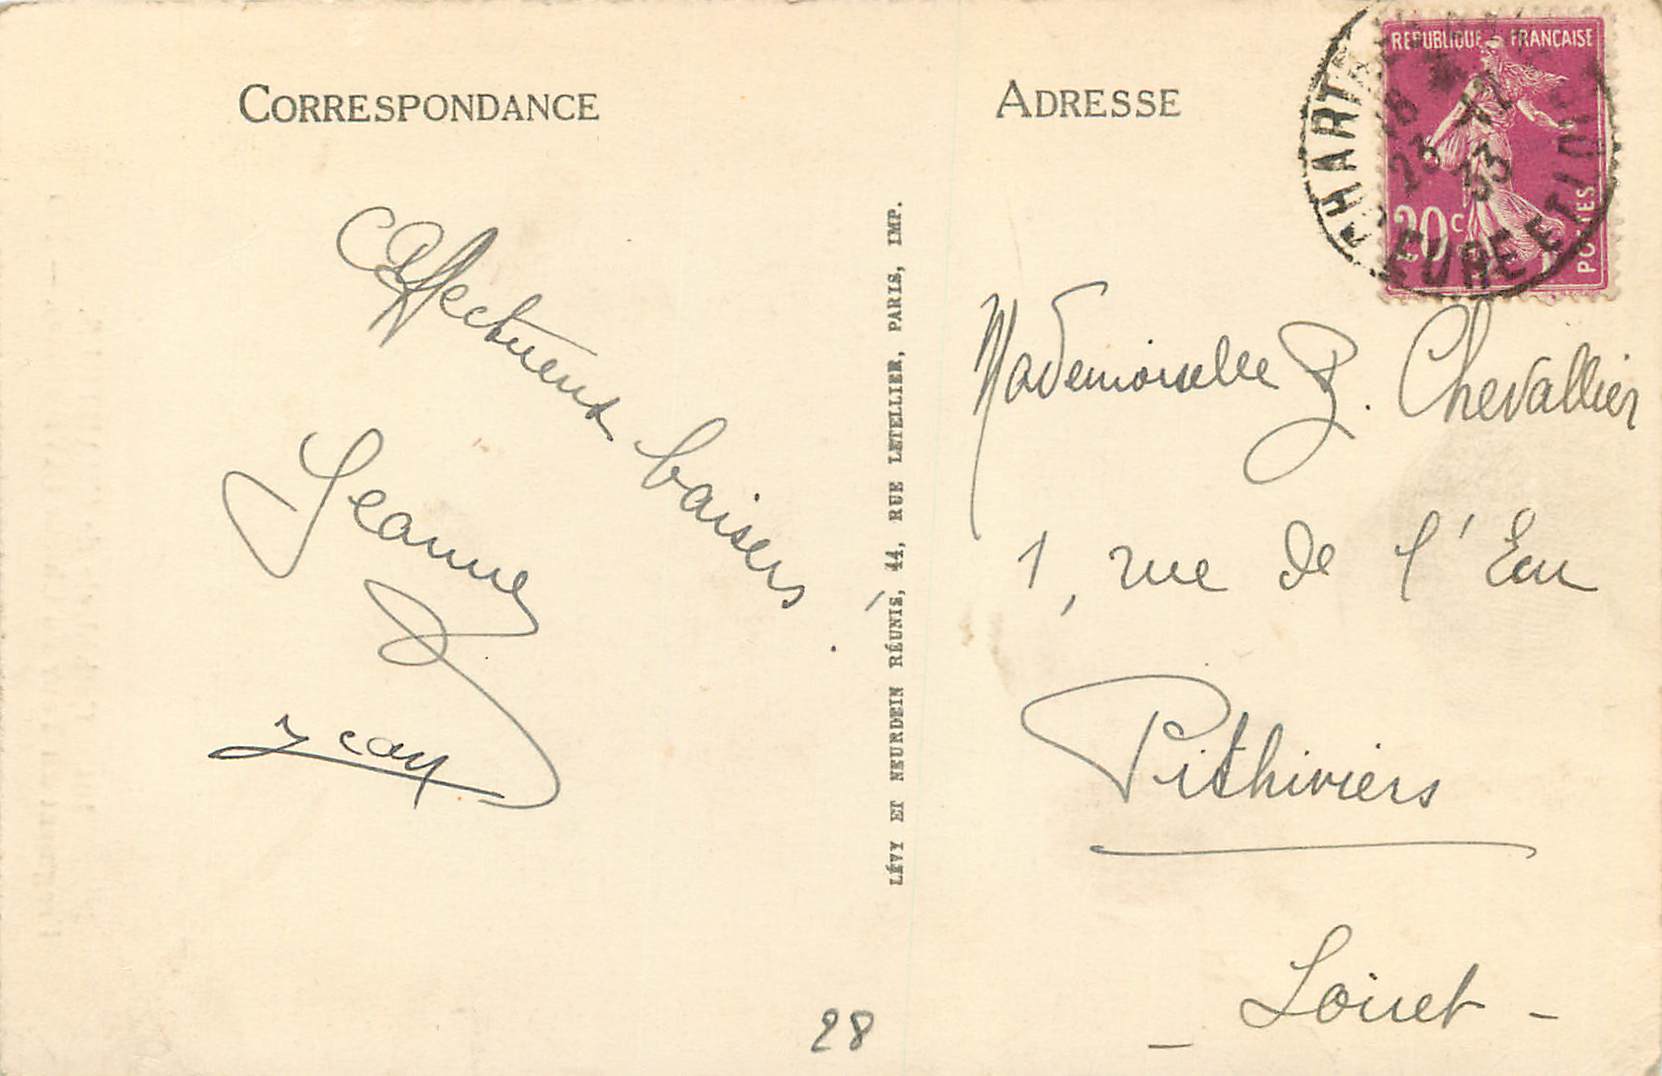 CORRESPONDANCE
Affectueux baisers
Jeanne
Jean
28
LÉVY ET NEURDEIN RÉUNIS, 44, RUE LETELLIER, PARIS, IMP.
ADRESSE
REPUBLIQUE FRANÇAISE
20c
POSTES
CHARTRES
18
23 12
33
EURE ET LOIR
Mademoiselle B. Chevallier
1, rue de l'Eau
Pithiviers
- Loiret -